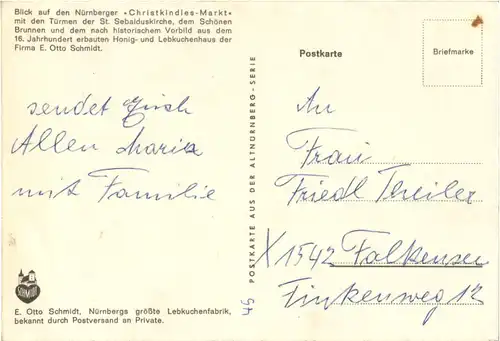 Blick auf den Nürnberger «Christkindles-Markt»
mit den Türmen der St. Sebalduskirche, dem Schönen
Brunnen und dem nach historischem Vorbild aus dem
16. Jahrhundert erbauten Honig- und Lebkuchenhaus der
Firma E. Otto Schmidt.
sendet Euch
Allen Maria
mit Familie
SCHMIDT
E. Otto Schmidt, Nürnbergs größte Lebkuchenfabrik,
bekannt durch Postversand an Private.
POSTKARTE AUS DER ALTNÜRNBERG-SERIE
45
Postkarte
Briefmarke
An
Frau
Friedl Theiler
X 1542 Falkensee
Finkenweg 12